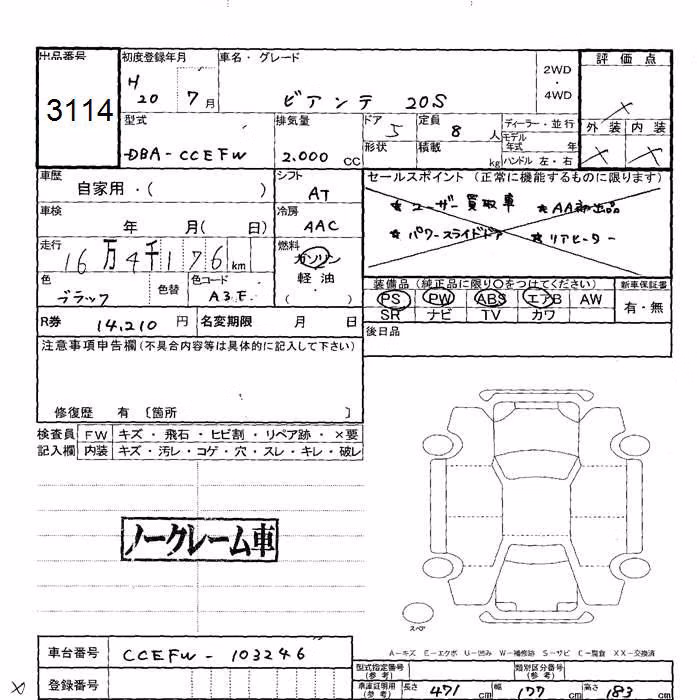 出品番号 初度登録年月 車名・グレード 評価点
3114
H20 7月 ビアンテ 20S 2WD・4WD
型式 排気量 ドア 定員 ディーラー・並行 外装 内装
DBA-CCEFW 2,000 CC 5 8人 モデル年式 年
形状 積載 kg ハンドル 左・右
車歴 シフト セールスポイント (正常に機能するものに限ります)
自家用・( ) AT
★ユーザー買取車 ★AA初出品
車検 冷房
年 月( 日) AAC
★パワースライドドア ★リアヒーター
走行 燃料
16万4千176km ガソリン
軽油
( )
色 色替 色コード
ブラック A3F
装備品 (純正品に限り○をつけてください) 新車保証書
PS PW ABS エアB AW 有・無
SR ナビ TV カワ
R券 14,210円 名変期限 月 日
後日品
注意事項申告欄(不具合内容等は具体的に記入して下さい)
修復歴 有 〔箇所 〕
検査員 FW キズ・飛石・ヒビ割・リペア跡・×要
記入欄 内装 キズ・汚レ・コゲ・穴・スレ・キレ・破レ
ノークレーム車
スペア
A-キズ E-エクボ U-凹み W-補修跡 S-サビ C-腐食 XX-交換済
車台番号 CCEFW-103246
登録番号
型式指定番号(参考) 類別区分番号(参考)
車庫証明用(参考) 長さ 471cm 幅 177cm 高さ 183cm